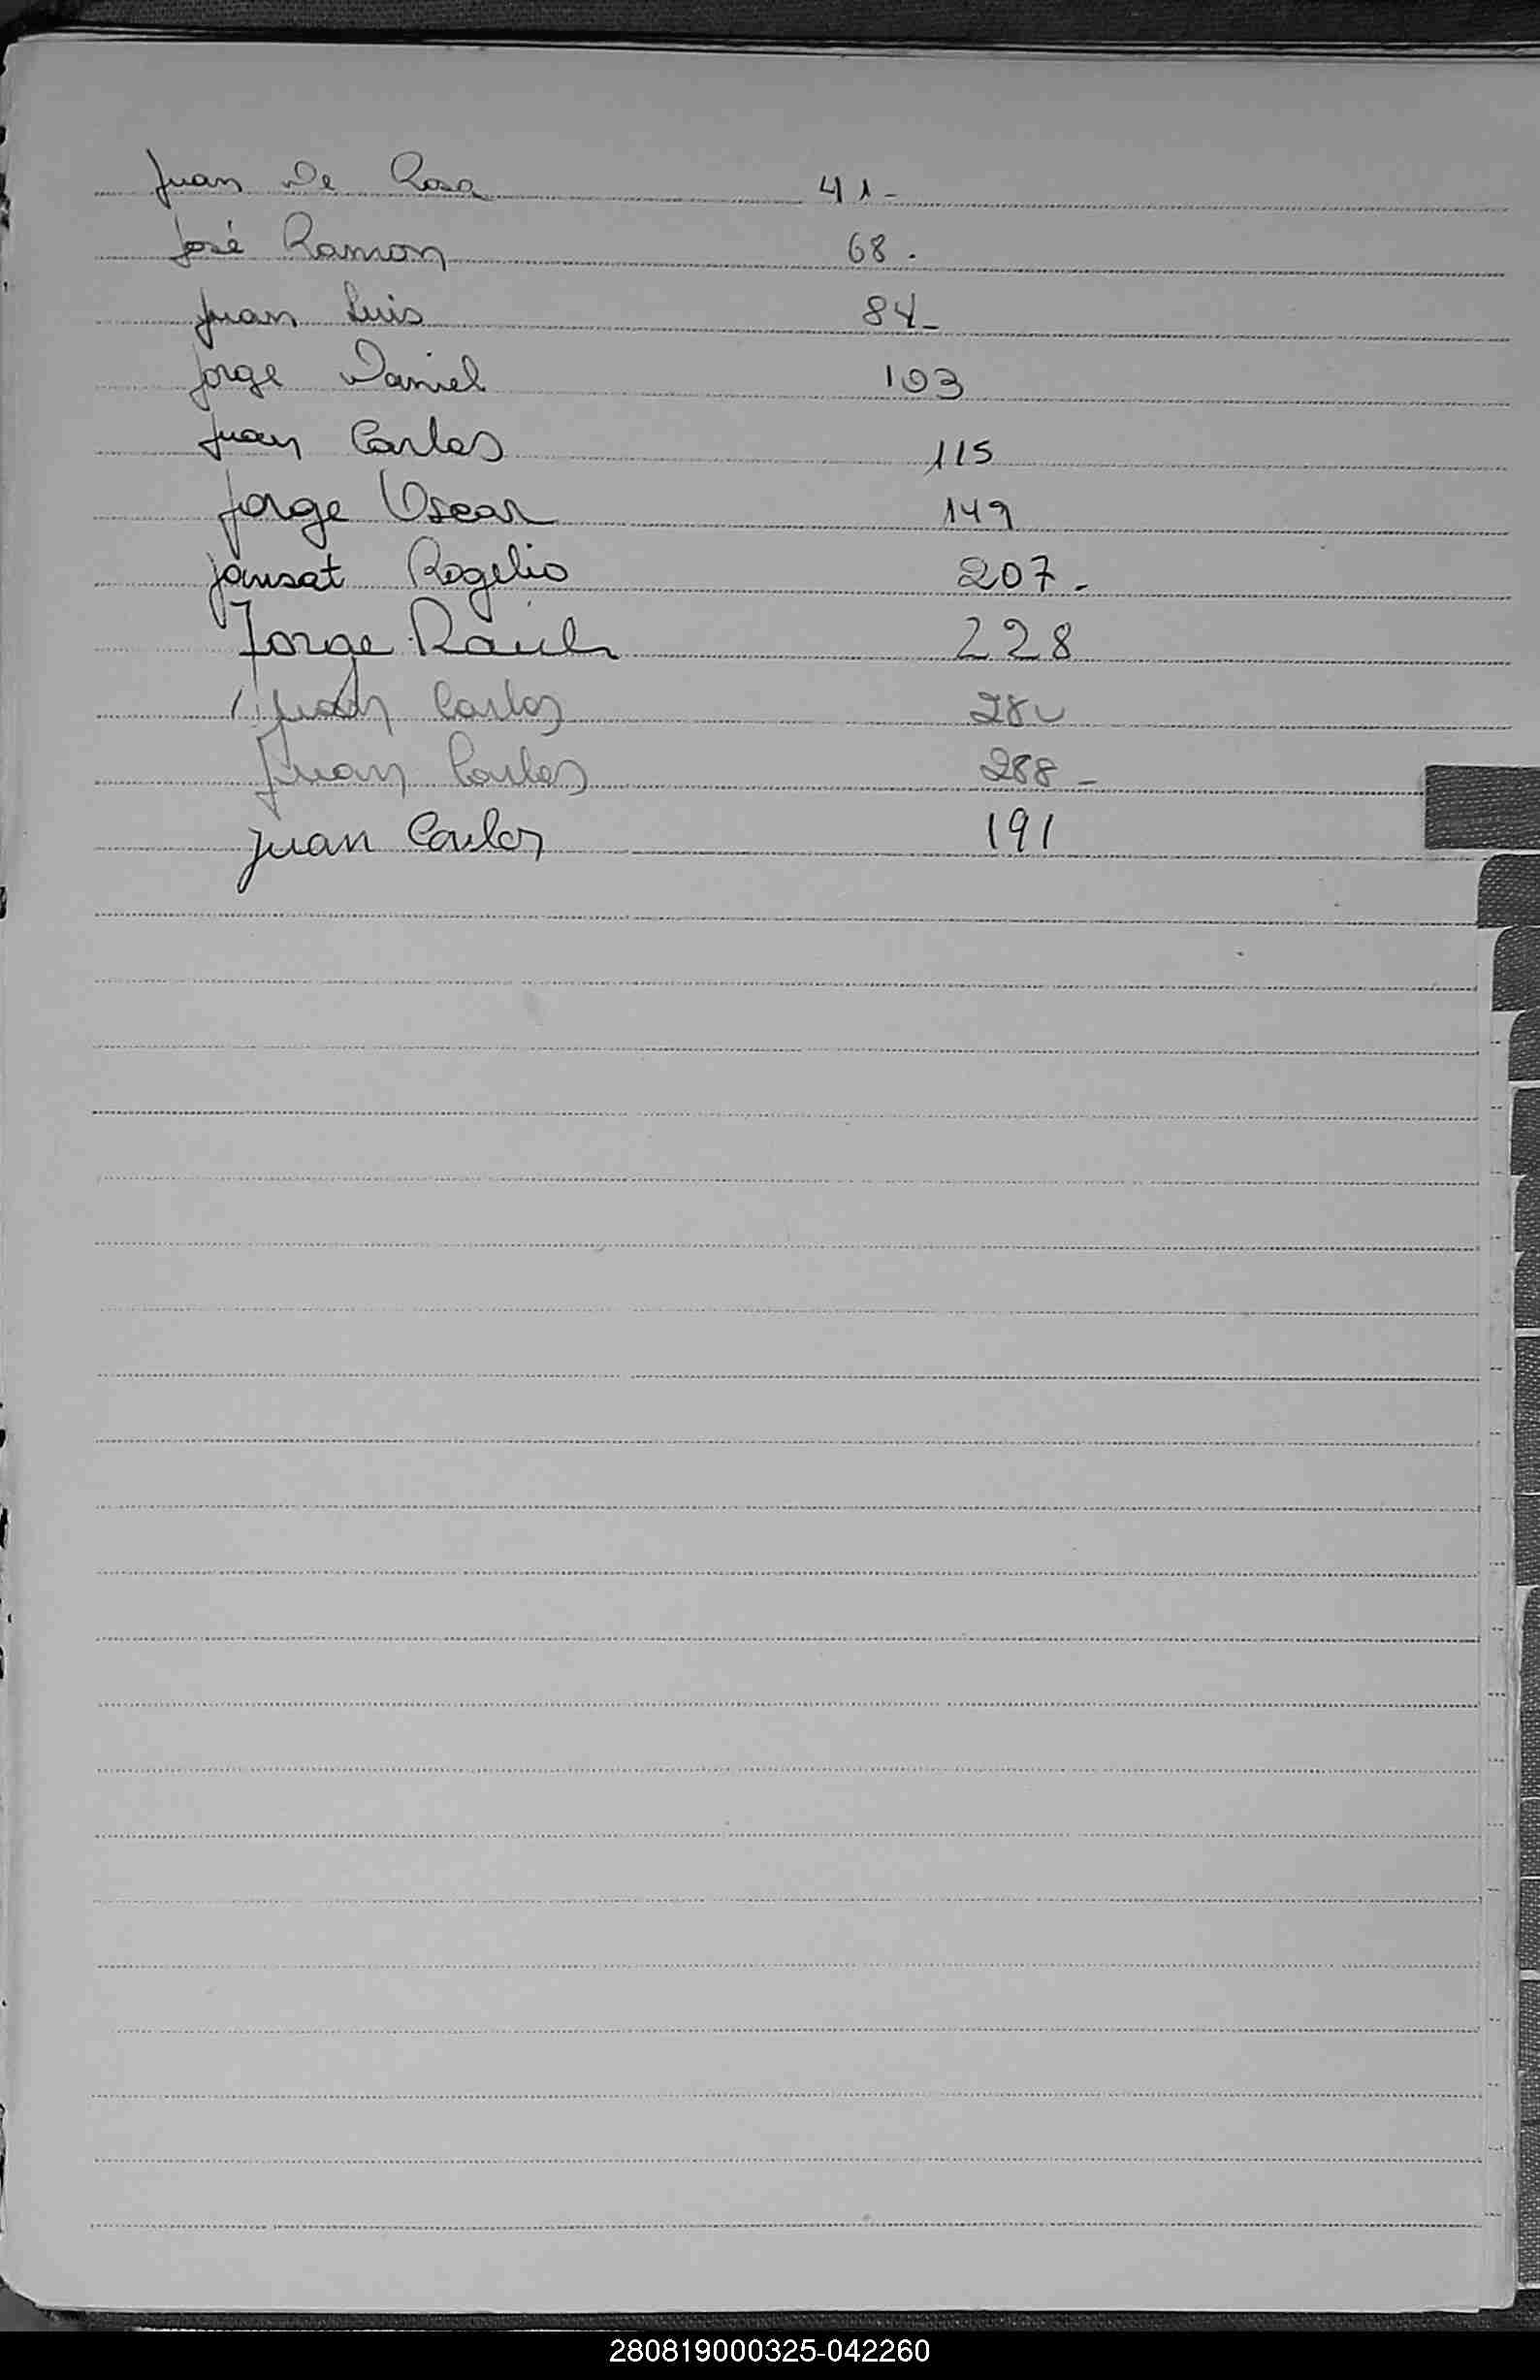 Juan De Rosa 41-
José Ramon 68.
Juan Luis 84-
Jorge Daniel 103
Juan Carlos 115
Jorge Oscar 149
Jousat Rogelio 207.-
Jorge Raúl 228
Juan Carlos
Juan Carlos 288-
Juan Carlos 191
280819000325-042260